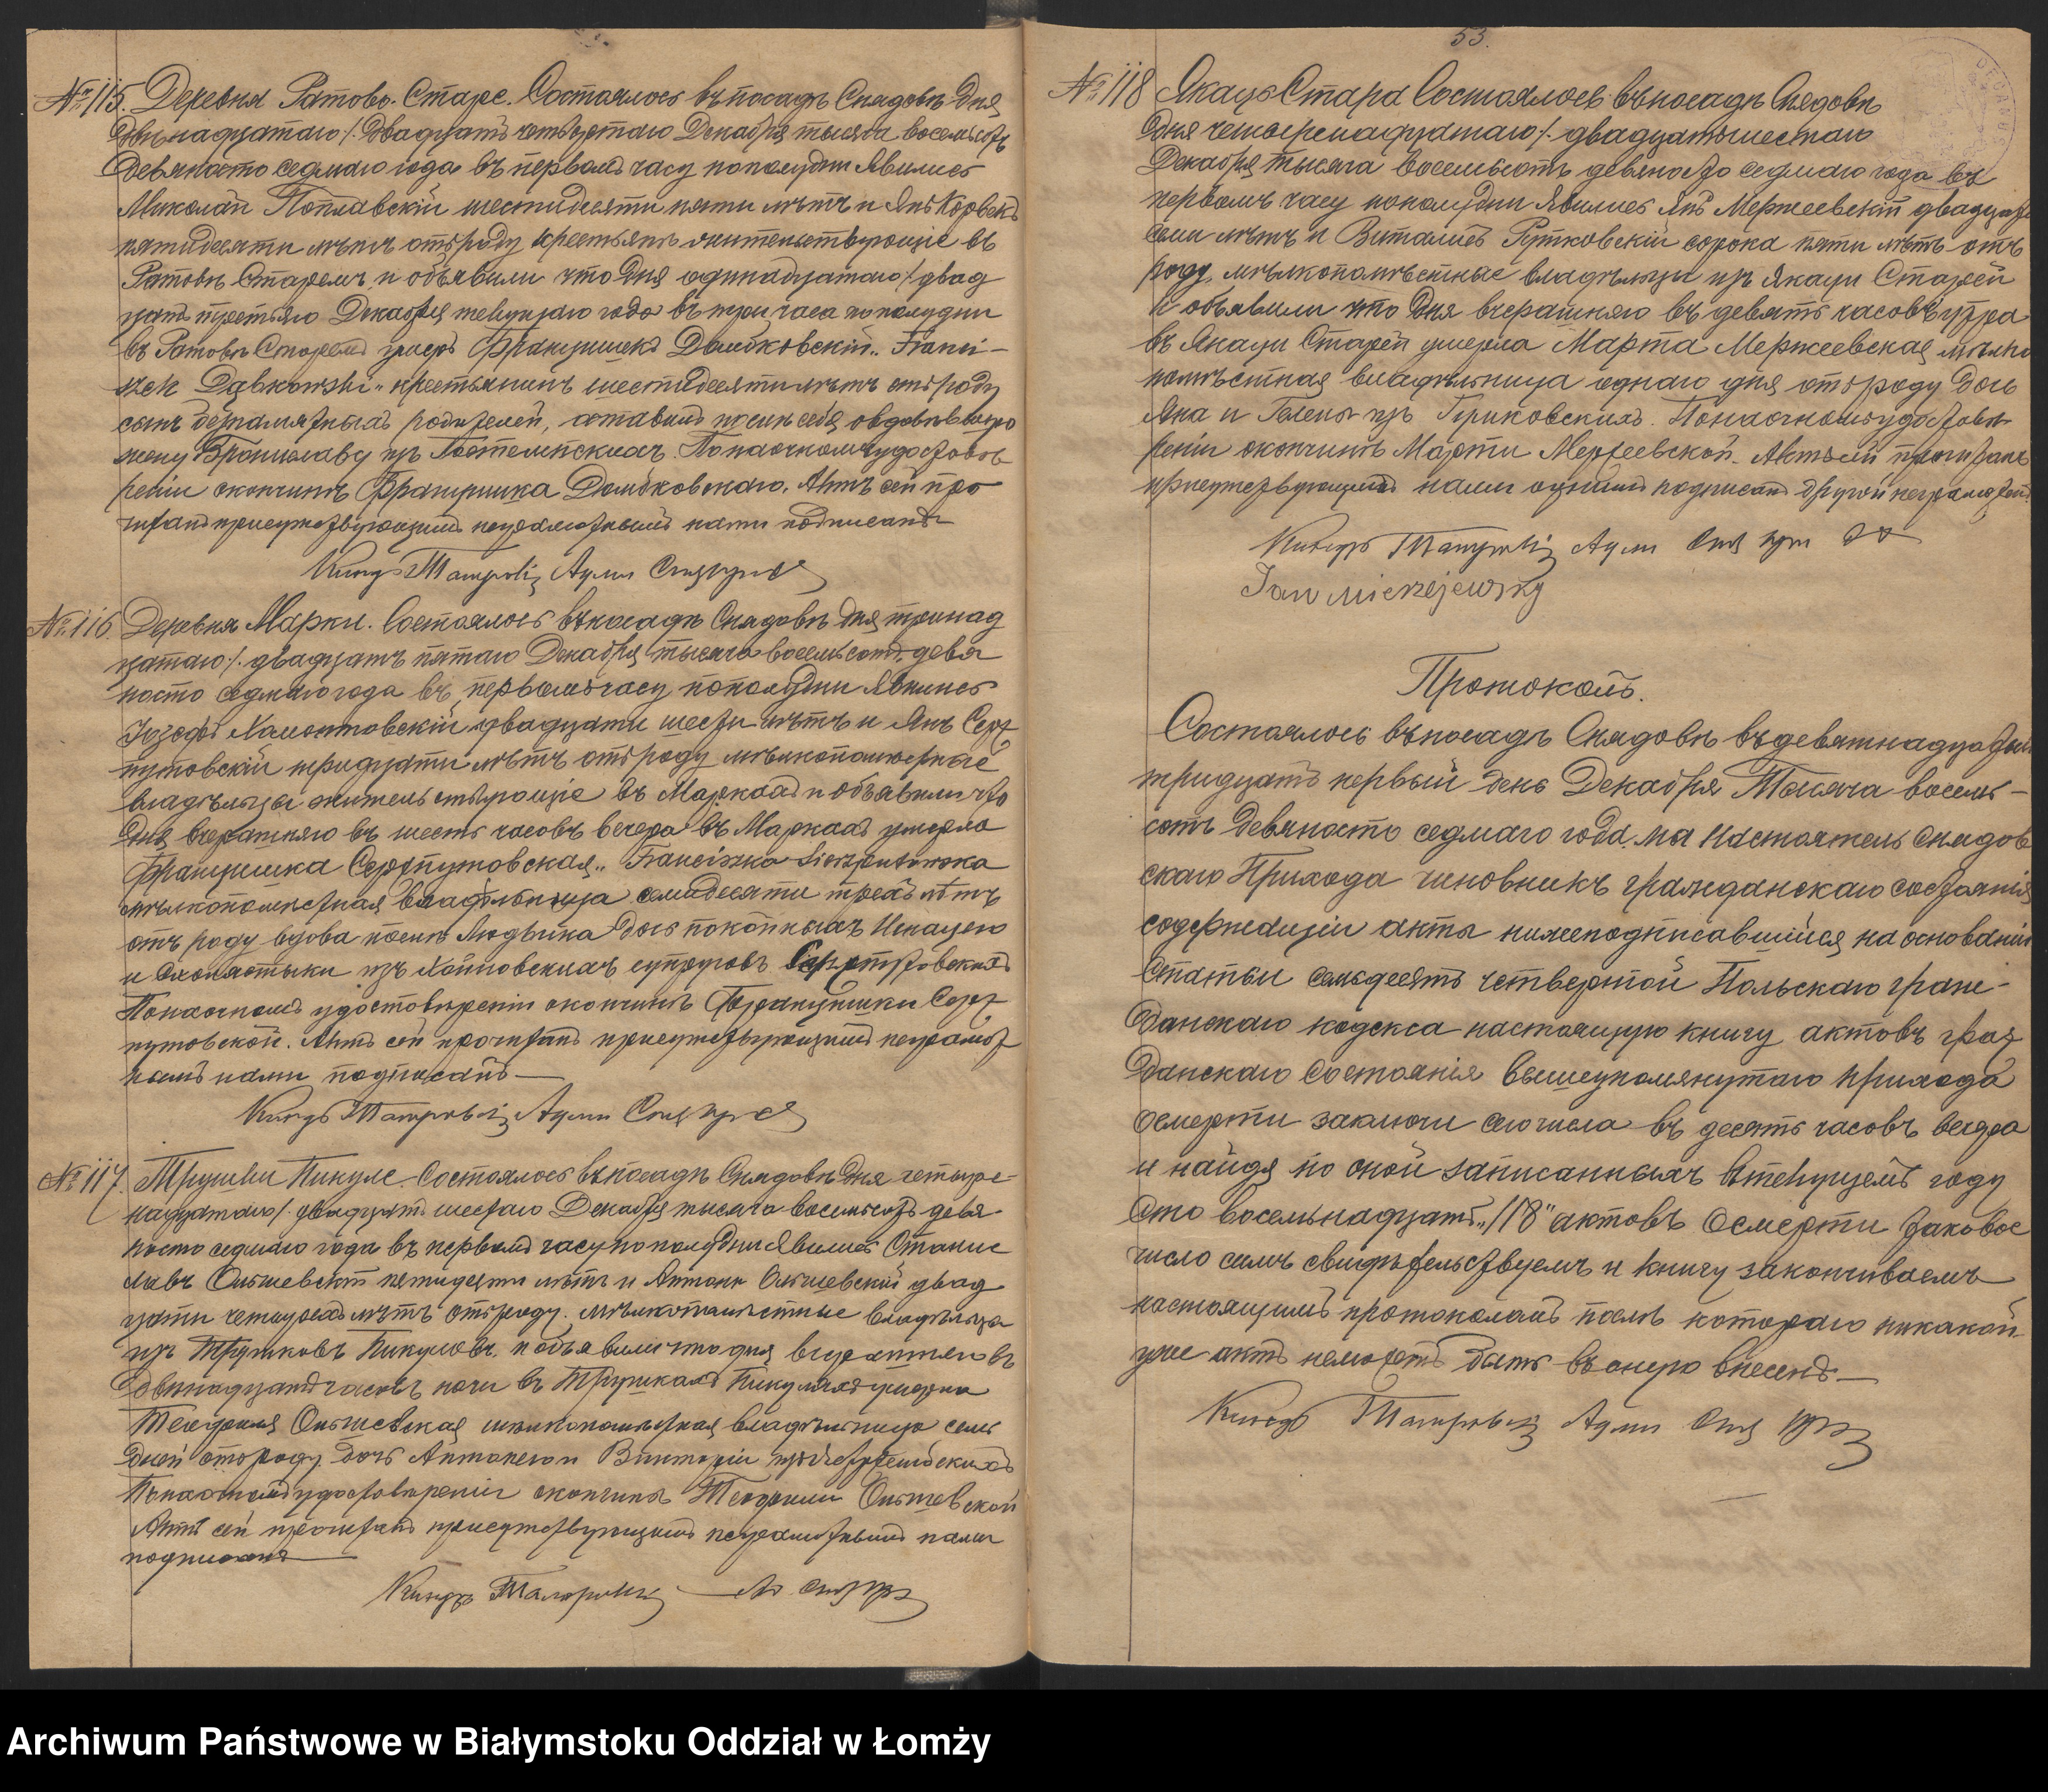 № 115. Деревня Ратово-Старе. Состоялось въ посадѣ Снядовѣ дня
двѣнадцатаго /: двадцать четвертаго Декабря тысяча восемьсотъ
девяносто седмаго года въ первомъ часу пополудни явились
Миколай Поплавскій шестидесяти пяти лѣтъ и Янъ
пятидесяти лѣтъ отъ роду крестьяне жительствующіе въ
Ратовѣ Старемъ, и объявили что дня одинадцатаго /: двад
цать третьяго Декабря текущаго года въ три часа пополудни
въ Ратовѣ Старемъ умеръ Францишекъ Домбковскій „Franci-
szek Dąbkowski" крестьянинъ шестидесяти лѣтъ отъ роду
сынъ родителей, оставилъ послѣ себя овдовѣвшую
жену Брониславу изъ По наочномъ удостовѣ
реніи кончины Францишка Домбковскаго. Актъ сей про
читанъ присутствующимъ неграмотнымъ нами подписанъ
Ксендзъ
№ 116. Деревня Марки. Состоялось въ посадѣ Снядовѣ дня тринад
цатаго /: двадцать пятаго Декабря тысяча восемьсотъ девя
носто седмаго года въ первомъ часу пополудни явились
Іозефъ Хамонтовскій двадцати шести лѣтъ и Янъ Серж
путовскій тридцати лѣтъ отъ роду мѣлкопомѣстные
владѣльцы жительствующіе въ Маркахъ и объявили что
дня вчерашняго въ шесть часовъ вечера въ Маркахъ умерла
Францишка Сержпутовская „Franciszka Sierzputowska
мѣлкопомѣстная владѣльница семидесяти трехъ лѣтъ
отъ роду вдова послѣ Людвика дочь покойныхъ Игнацего
и Схоластыки изъ супруговъ
По наочномъ удостовѣреніи кончины Францишки Серж
путовской. Актъ сей прочитанъ присутствующимъ неграмот
нымъ нами подписанъ
Ксендзъ
№ 117. Трушки Пикуле. Состоялось въ посадѣ Снядовѣ дня четыре-
надцатаго /: двадцать шестаго Декабря тысяча восемьсотъ девя
носто седмаго года въ первомъ часу пополудни явились Станис
лавъ Ольшевскій пятидесяти лѣтъ и Антони Ольшевскій двад
цати четырехъ лѣтъ отъ роду. мѣлкопомѣстные владѣльцы
изъ Трушковъ Пикулевъ. и объявили что дня вчерашняго въ
двѣнадцать часовъ ночи въ Трушкахъ Пикуляхъ умерла
Теофиля Ольшевская мѣлкопомѣстная владѣльница семь
дней отъ роду дочь Антонего и Викторіи
По наочномъ удостовѣреніи кончины Теофили Ольшевской
Актъ сей прочитанъ присутствующимъ неграмотнымъ нами
подписанъ
Ксендзъ
53.
№ 118 Якаць Стара Состоялось въ посадѣ Снядовѣ
дня четыренадцатаго /: двадцать шестаго
Декабря тысяча восемьсотъ девяносто седмаго года въ
первомъ часу пополудни явились Янъ Мержеевскій двадцати
семи лѣтъ и Виталисъ Рутковскій сорока пяти лѣтъ отъ
роду, мѣлкопомѣстные владѣльцы изъ Якаци Старей
и объявили что дня вчерашняго въ девять часовъ утра
въ Якаци Старей умерла Марта Мержеевская мѣлко
помѣстная владѣльница однаго дня отъ роду дочь
Яна и Гелены изъ По наочномъ удостовѣ
реніи кончины Марты Мержеевской. Актъ сей прочитанъ
присутствующимъ нами однимъ подписанъ другой неграмотенъ
Ксендзъ
Jan Mierzejewsky
Протоколъ.
Состоялось въ посадѣ Снядовѣ въ девятнадцатый
тридцать первый день Декабря Тысяча восемь-
сотъ девяносто седмаго года. мы Настоятель Снядов
скаго Прихода чиновникъ гражданскаго состоянія
содержащій акты нижеподписавшійся на основаніи
Статьи семьдесятъ четвертой Польскаго граж-
данскаго кодекса настоящую книгу актовъ граж
данскаго состоянія вышеупомянутаго прихода
о смерти заключи сего числа въ десять часовъ вечера
и найдя по оной записанныхъ въ текущемъ году
Сто восемьнадцать „118" актовъ о смерти таковое
число симъ свидѣтельствуемъ и книгу закончиваемъ
настоящимъ протоколамъ послѣ котораго никакой
уже актъ неможетъ быть въ оную внесенъ.
Ксендзъ
Archiwum Państwowe w Białymstoku Oddział w Łomży